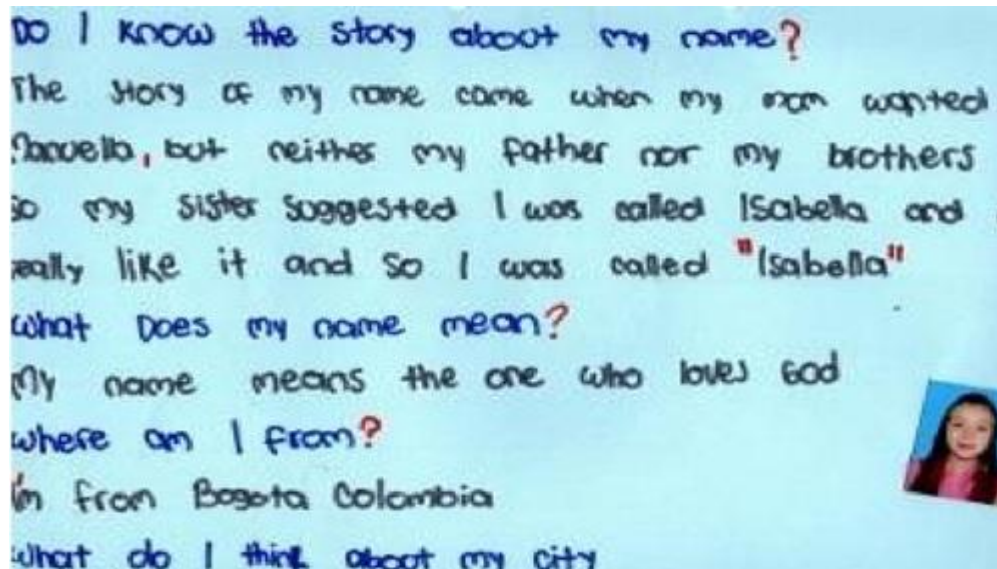 Do I know the story about my name?
The story of my name came when my mom wanted
Manuella, but neither my father nor my brothers
so my sister suggested I was called Isabella and
really like it and so I was called "Isabella"
what Does my name mean?
My name means the one who loves God
where am I from?
I'm from Bogota Colombia
what do I think about my city